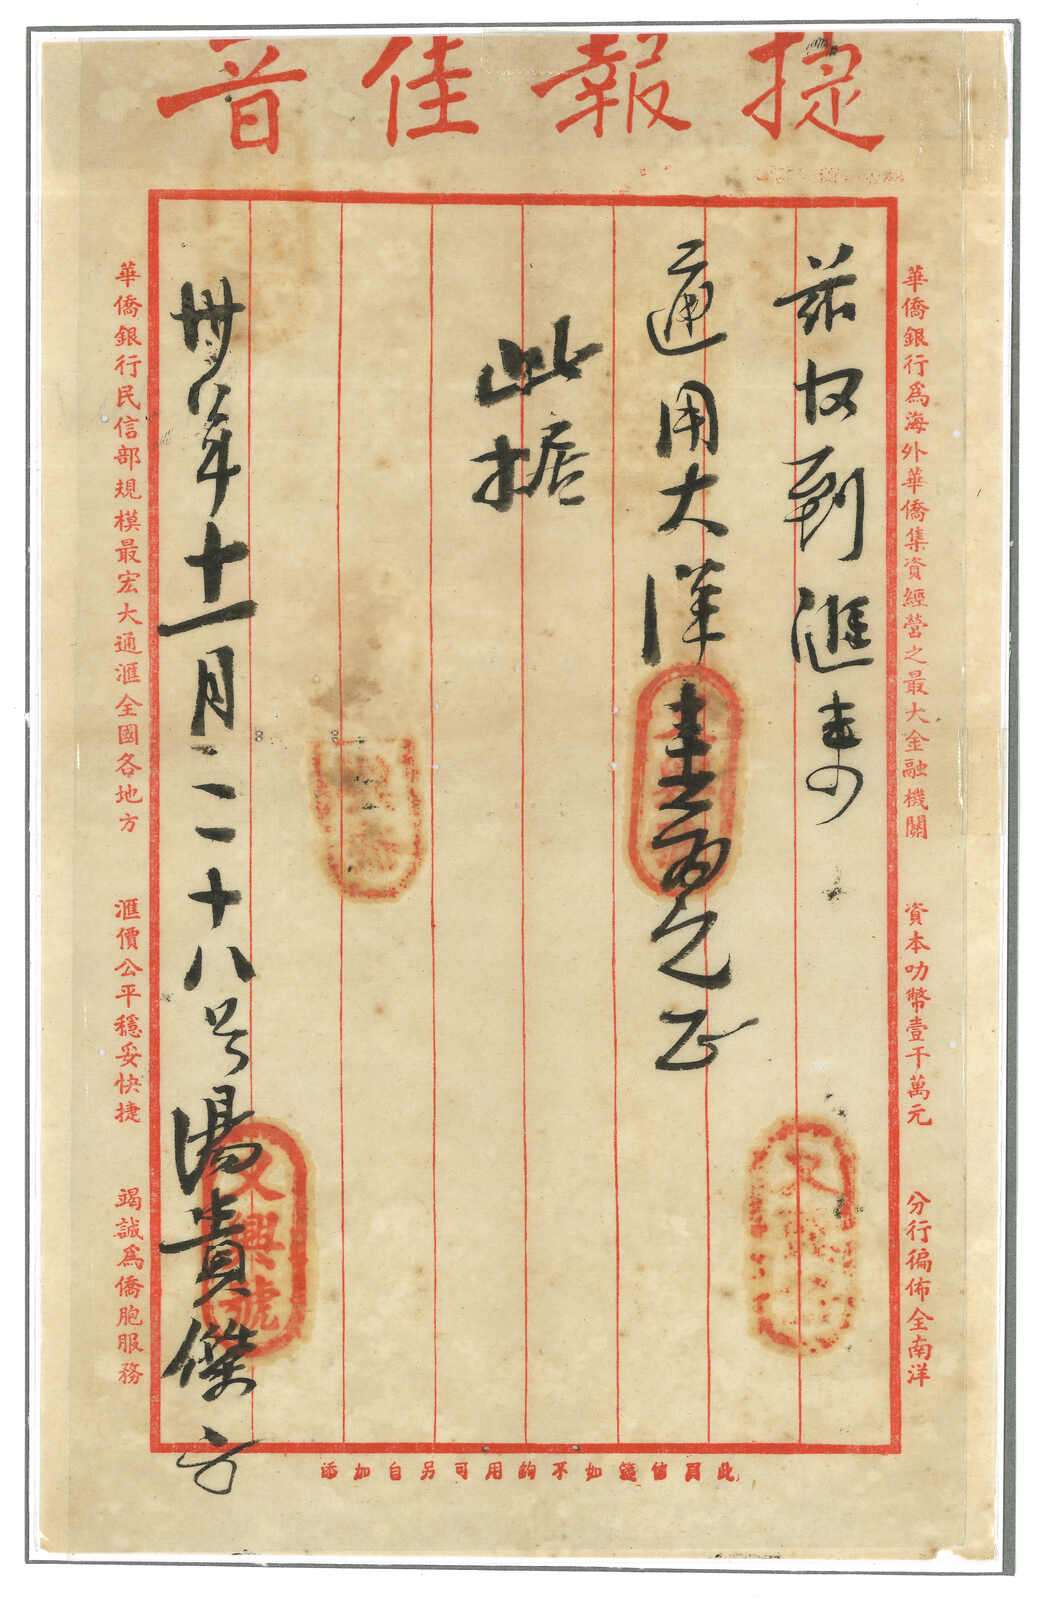 捷報佳音
華僑銀行爲海外華僑集資經營之最大金融機關 資本叻幣壹千萬元 分行徧佈全南洋
茲收到滙来
通用大洋壹百元正
此据
卅八年十一月二十八号湯貴傑方
友興號
華僑銀行民信部規模最宏大通滙全國各地方 滙價公平穩妥快捷 竭誠爲僑胞服務
此頁信箋如不夠用可另自加添